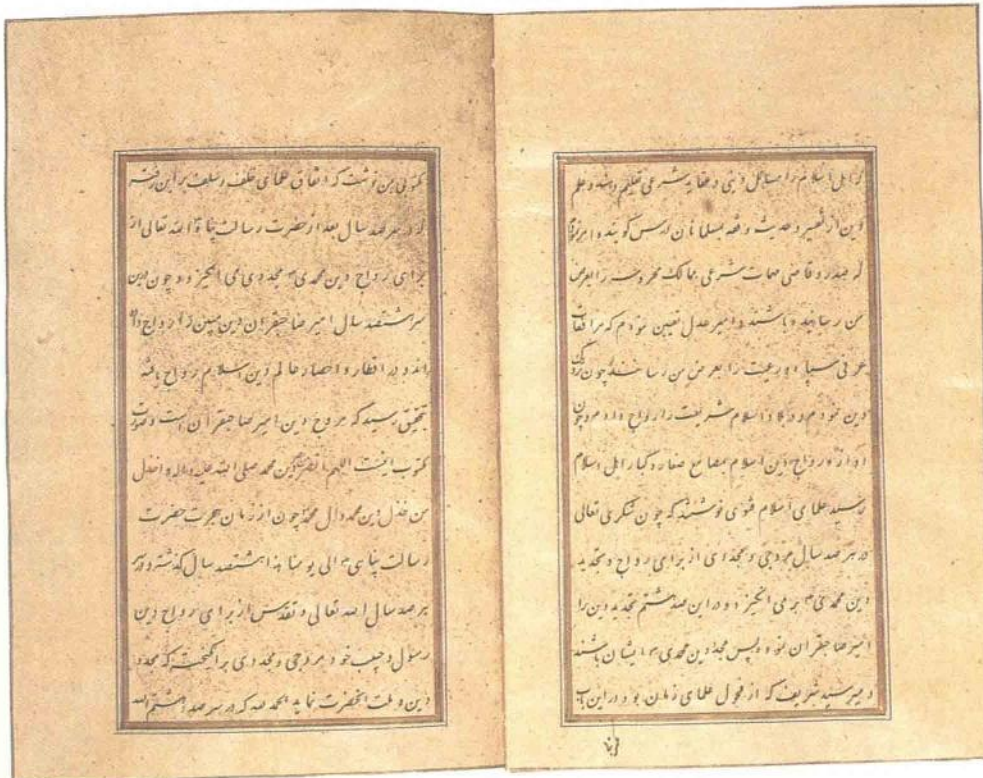 که اهل اسلام را مسایل دینی و عقاید شرعی تعلیم دهند و علم
دین از تفسیر و حدیث و فقه بمسلمانان درس گویند و امر نمودم
که صدر و قاضی مهمات شرعی ممالک محروسه را بعرض
من رسانیده باشند و امیر عدل تعیین نمودم که مرافعات
عرفی سپاه و رعیت را بعرض من رسانند چون
دین نمودم و در بلاد اسلام شریعت را رواج دادم و چون
آوازه رواج دین اسلام بمسامع صغار و کبار اهل اسلام
رسید علمای اسلام فتوی نوشتند که چون تنکری تعالی
در هر صد سال مروجی و مجددی از برای رواج و تجدید
دین محمدی م برمی انگیزد و در این صد هشتم تجدید دین را
امیر صاحبقران نمود پس مجدد دین محمدی م ایشان باشند
و میر سید شریف که از فحول علمای زمان بود در این باب
مکتوبی بمن نوشت که اتفاق علمای خلف و سلف بر این رفته
که در هر صد سال بعد از حضرت رسالت پناه الله تعالی از
برای رواج دین محمدی م مجددی می انگیزد و چون در این
سر هشتصد سال امیر صاحبقران دین مبین را رواج داده
اند و در اقطار و امصار عالم دین اسلام رواج یافته
بتحقیق رسید که مروج دین امیر صاحبقران است و صورت
مکتوب اینست اللهم انصر من نصر دین محمد صلی الله علیه و اله و اخذل
من خذل دین محمد و ال محمد چون از زمان هجرت حضرت
رسالت پناهی م الی یومنا هذا هشتصد سال گذشته و در سر
هر صد سال الله تعالی و تقدس از برای رواج دین
رسول و حبیب خود مروجی و مجددی برانگیخت که مجدد
دین و ملت آنحضرت نماید الحمد لله که در سر صد هشتم الله